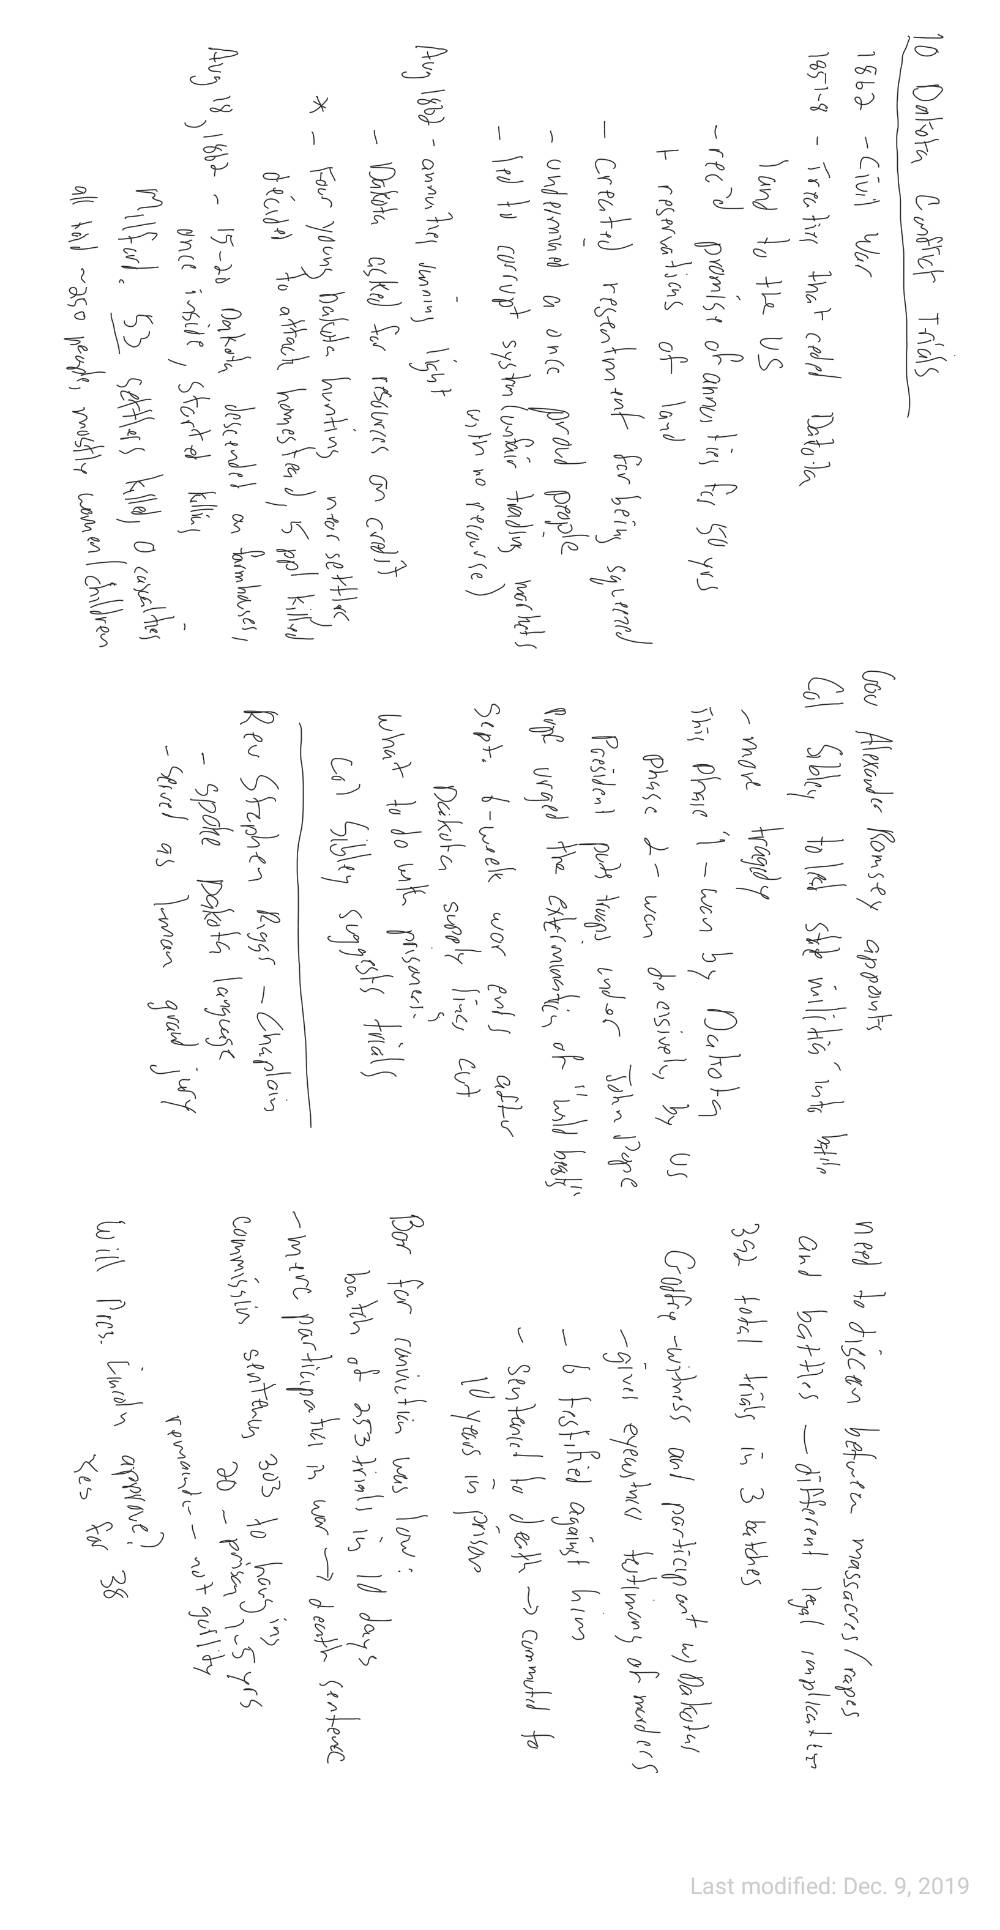 10 Dakota Conflict Trials
1862 - Civil War
1851-8 - Treaties that ceded Dakota
land to the US
- rec'd promise of annuities for 50 yrs
+ reservations of land
- created resentment for being squeezed
- undermined a once proud people
- led to corrupt system (unfair trading markets
with no recourse)
Aug 1862 - annuities running light
- Dakota asked for resources on credit
* - Four young Dakota hunting near settlers,
decided to attack homestead, 5 ppl killed
Aug 18, 1862 - 15-20 Dakota descended on farmhouses,
once inside, started killing
Milford. 53 settlers killed, 0 casualties
all told ~250 people, mostly women/children
Gov Alexander Ramsey appoints
Col Sibley to lead state militia into battle
- more tragedy
This Phase 1 - won by Dakota
Phase 2 - won decisively by US
President puts troops under John Pope
Pope urged the extermination of "wild beasts"
Sept. 6-week war ends after
Dakota supply lines cut
What to do with prisoners?
Col Sibley suggests trials
Rev Stephen Riggs - Chaplain
- spoke Dakota language
- Served as 1-man grand jury
need to discern between massacres/rapes
and battles - different legal implications
392 total trials in 3 batches
Godfrey - witness and participant w/ Dakotas
- gives eyewitness testimony of murders
- 6 testified against him
- sentenced to death → commuted to
10 years in prison
Bar for conviction was low:
batch of 253 trials in 10 days
- mere participation in war → death sentence
commission sentences 303 to hanging
20 - prison 1-5 yrs
remainder - not guilty
Will Pres. Lincoln approve?
Yes for 38
Last modified: Dec. 9, 2019